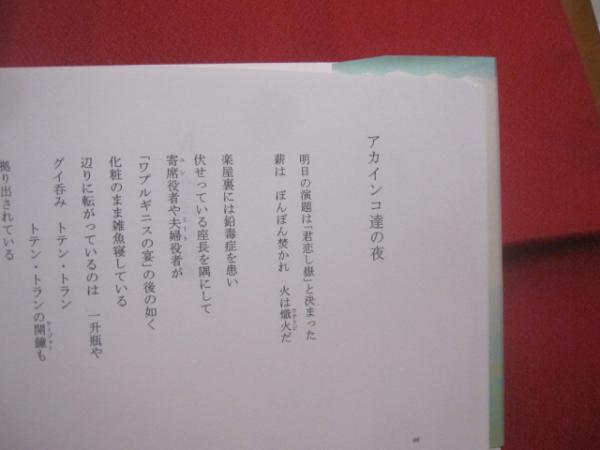 アカインコ達の夜
明日の演題は「君恋し嶽」と決まった
薪は ぽんぽん焚かれ 火は熾火だ
楽屋裏には鉛毒症を患い
伏せっている座長を隅にして
寄席役者や夫婦役者が
「ワプルギニスの宴」の後の如く
化粧のまま雑魚寝している
辺りに転がっているのは 一升瓶や
グイ呑み トテン・トラン
トテン・トランの開鐘も
拠り出されている